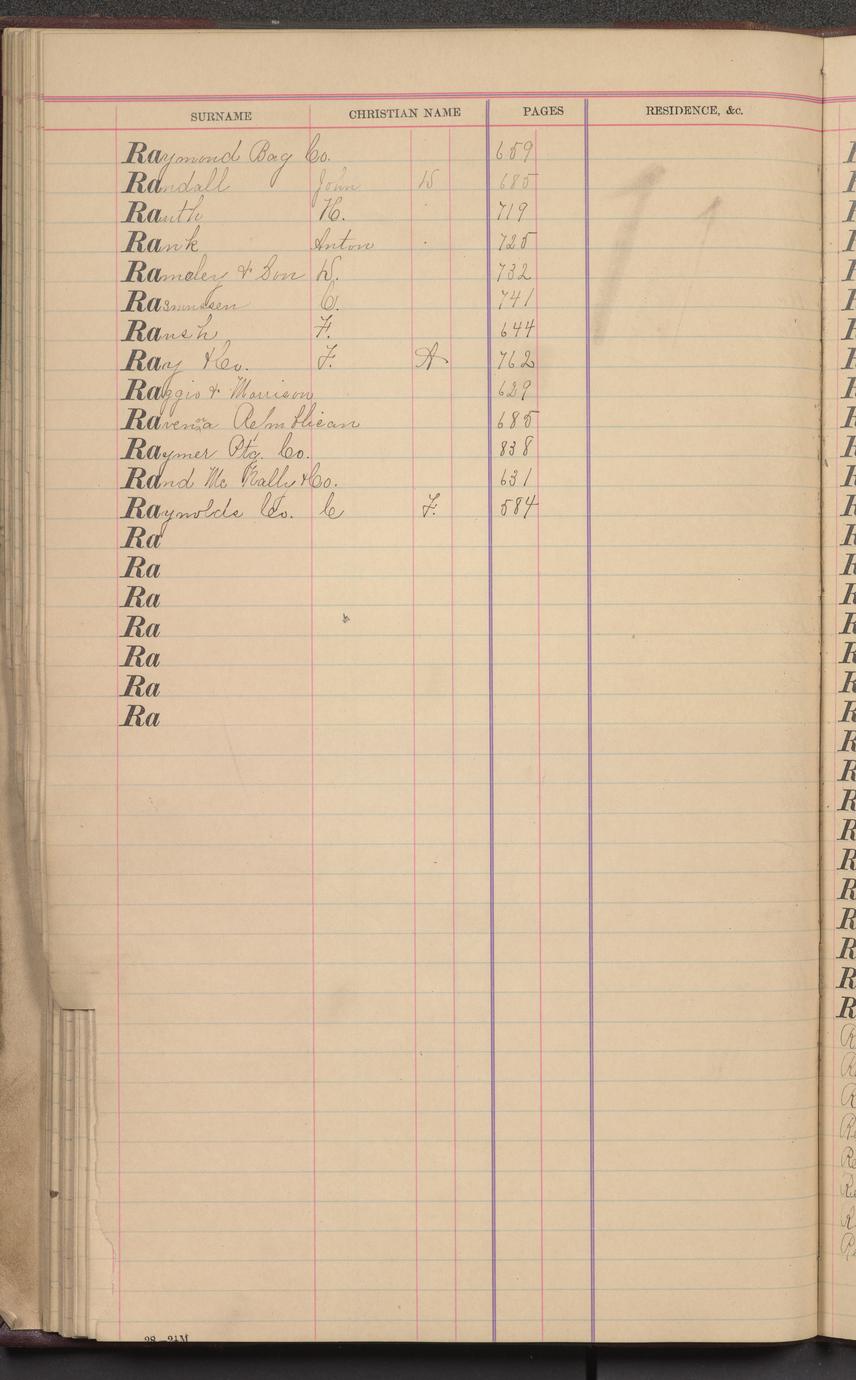 SURNAME CHRISTIAN NAME PAGES RESIDENCE, &c.
Raymond Bag Co. 659
Randall John W 685
Rauth H. 719
Rank Anton 725
Ramsley & Son W. 732
Rasmussen C. 741
Raush F. 644
Ray & Co. F. A 762
Raggio & Morrison 629
Ravenna Republican 685
Raymer Ptg. Co. 838
Rand Mc Nally & Co. 631
Raynolds Co. C F. 584
Ra
Ra
Ra
Ra
Ra
Ra
Ra